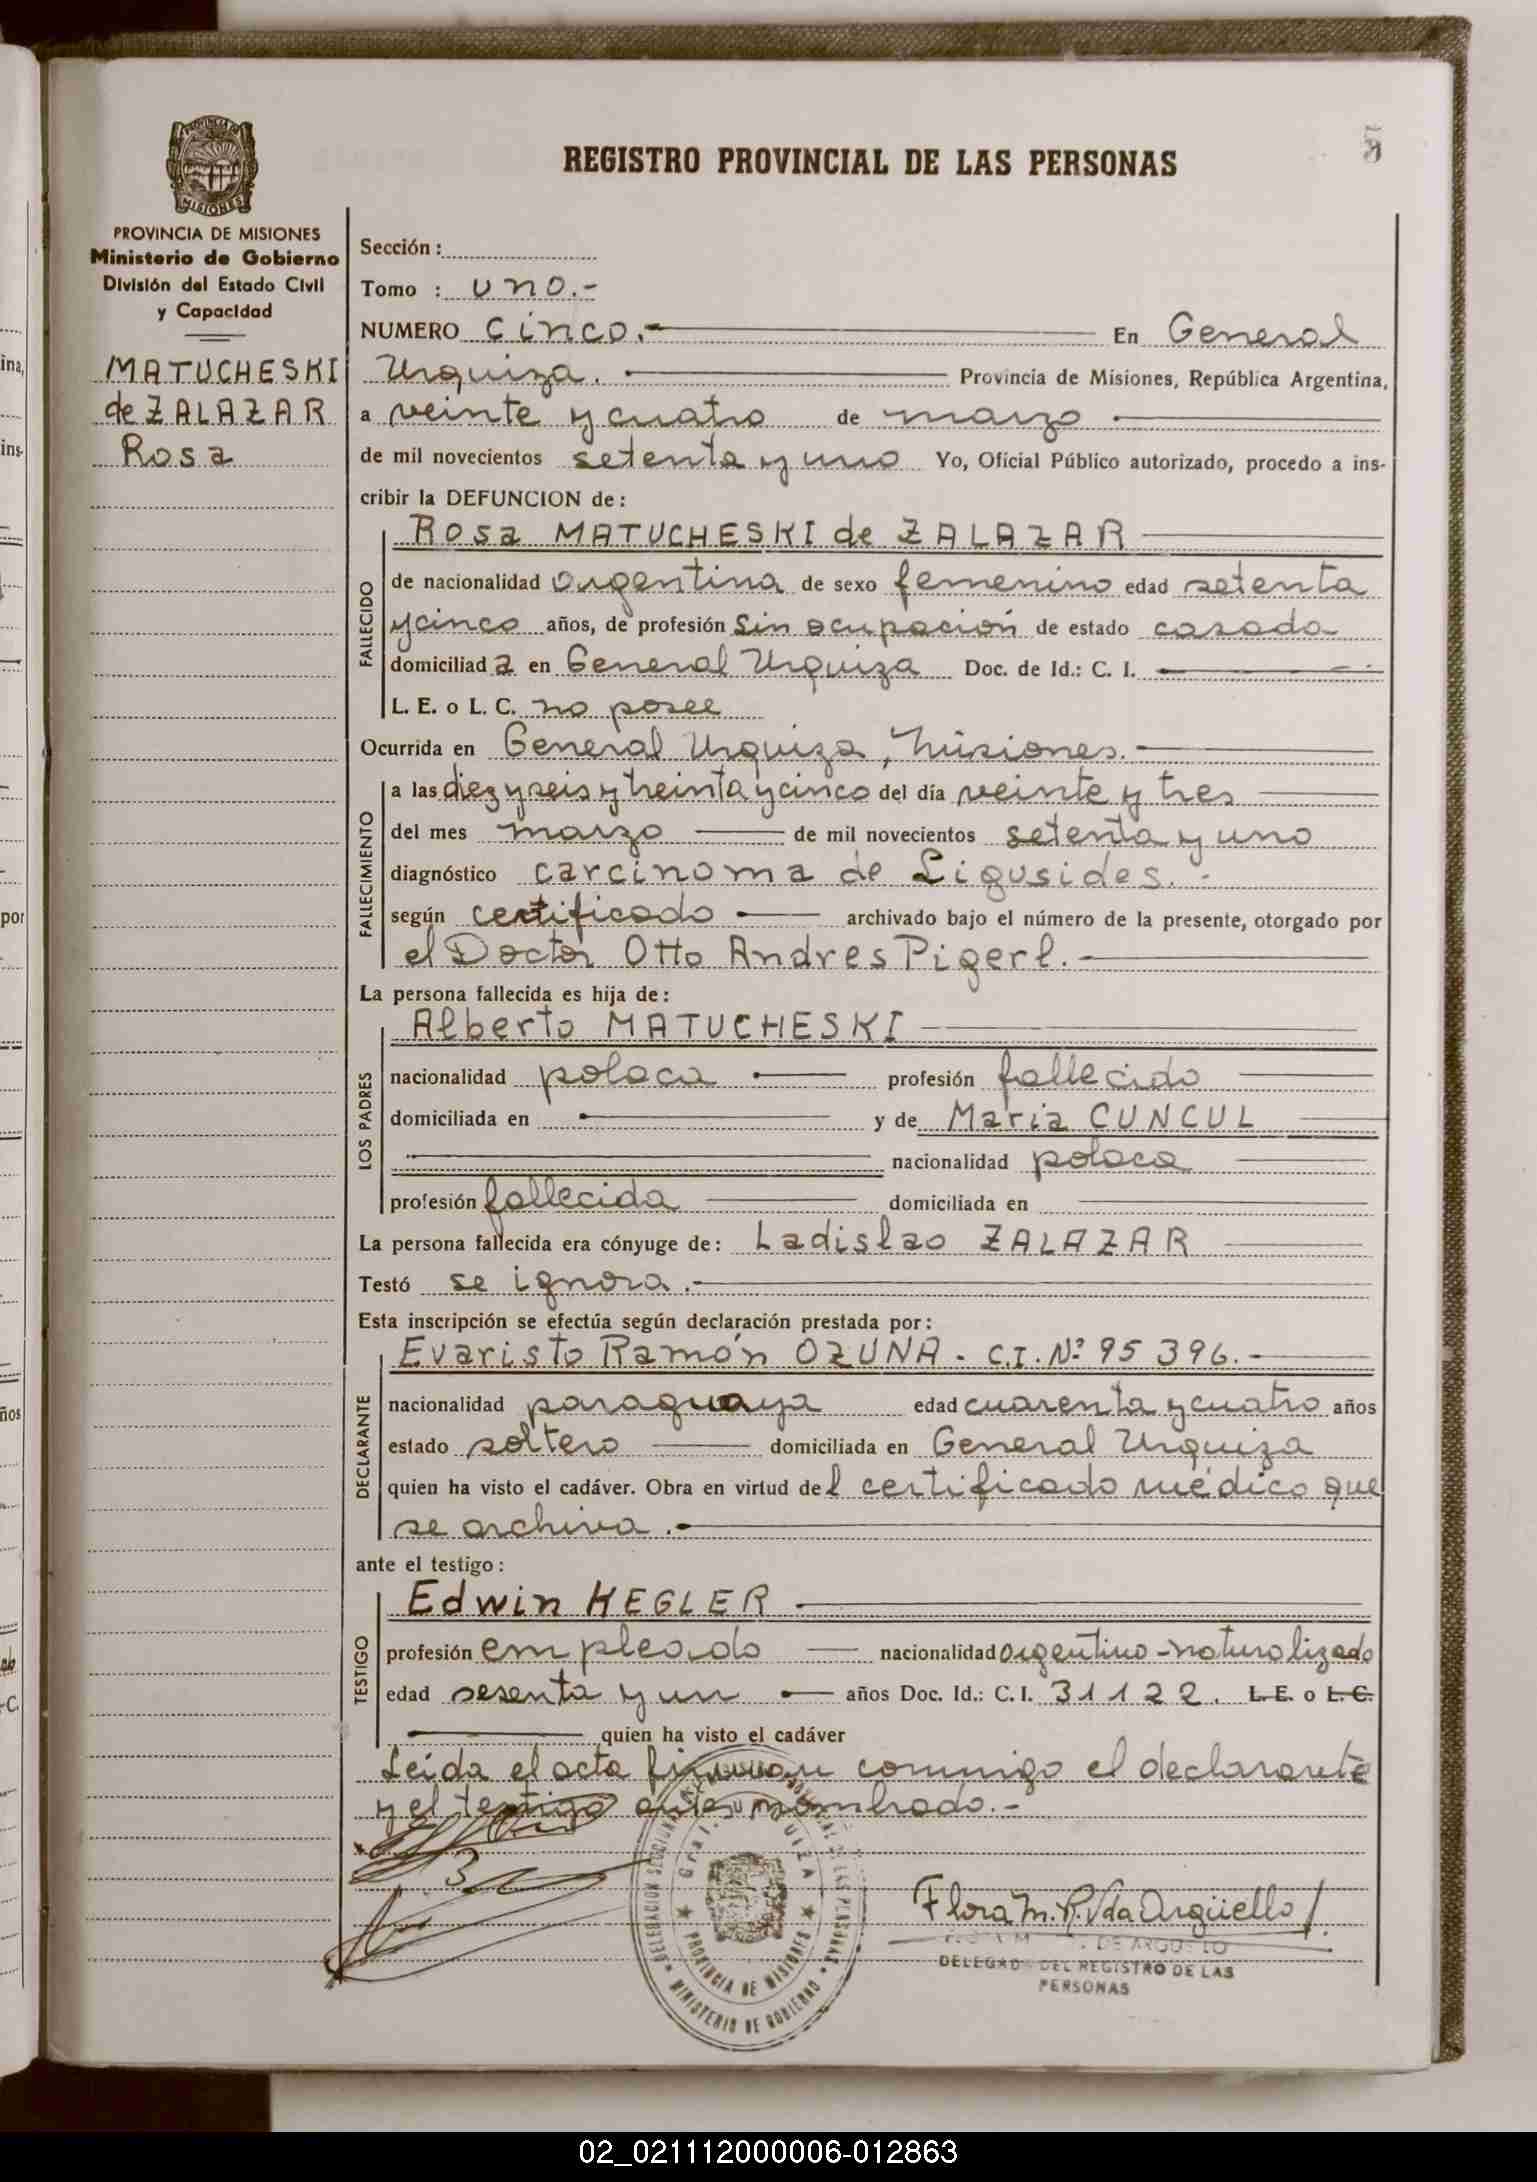 REGISTRO PROVINCIAL DE LAS PERSONAS
PROVINCIA DE MISIONES
PROVINCIA DE MISIONES
Ministerio de Gobierno
División del Estado Civil
y Capacidad
MATUCHESKI
de ZALAZAR
Rosa
Sección:
Tomo : uno.-
NUMERO cinco. En General
Urquiza. Provincia de Misiones, República Argentina,
a veinte y cuatro de marzo
de mil novecientos setenta y uno Yo, Oficial Público autorizado, procedo a ins-
cribir la DEFUNCION de:
Rosa MATUCHESKI de ZALAZAR
FALLECIDO
de nacionalidad argentina de sexo femenino edad setenta
y cinco años, de profesión Sin ocupación de estado casada
domiciliada en General Urquiza Doc. de Id.: C. I.
L. E. o L. C. no posee
Ocurrida en General Urquiza, Misiones.
FALLECIMIENTO
a las diez y seis y treinta y cinco del día veinte y tres
del mes marzo de mil novecientos setenta y uno
diagnóstico carcinoma de Ligusides.-
según certificado archivado bajo el número de la presente, otorgado por
el Doctor Otto Andres Pigerl.
La persona fallecida es hija de:
LOS PADRES
Alberto MATUCHESKI
nacionalidad polaca profesión fallecido
domiciliada en y de Maria CUNCUL
nacionalidad polaca
profesión fallecida domiciliada en
La persona fallecida era cónyuge de: Ladislao ZALAZAR
Testó se ignora.
Esta inscripción se efectúa según declaración prestada por:
DECLARANTE
Evaristo Ramón OZUNA - C.I. Nº 95 396.
nacionalidad paraguaya edad cuarenta y cuatro años
estado soltero domiciliada en General Urquiza
quien ha visto el cadáver. Obra en virtud del certificado médico que
se archiva.
ante el testigo:
TESTIGO
Edwin HEGLER
profesión empleado nacionalidad argentino-naturalizado
edad sesenta y un años Doc. Id.: C. I. 31122. L. E. o L. C.
quien ha visto el cadáver
Leida el acta firman conmigo el declarante
y el testigo antes nombrado.-
DELEGACION SECCIONAL DE LAS PERSONAS
PROVINCIA DE MISIONES
MINISTERIO DE GOBIERNO
Flora M. R. Vda Argüello
DE ARGUELLO
DELEGADA DEL REGISTRO DE LAS
PERSONAS
ina,
ins-
por
ños
02_021112000006-012863